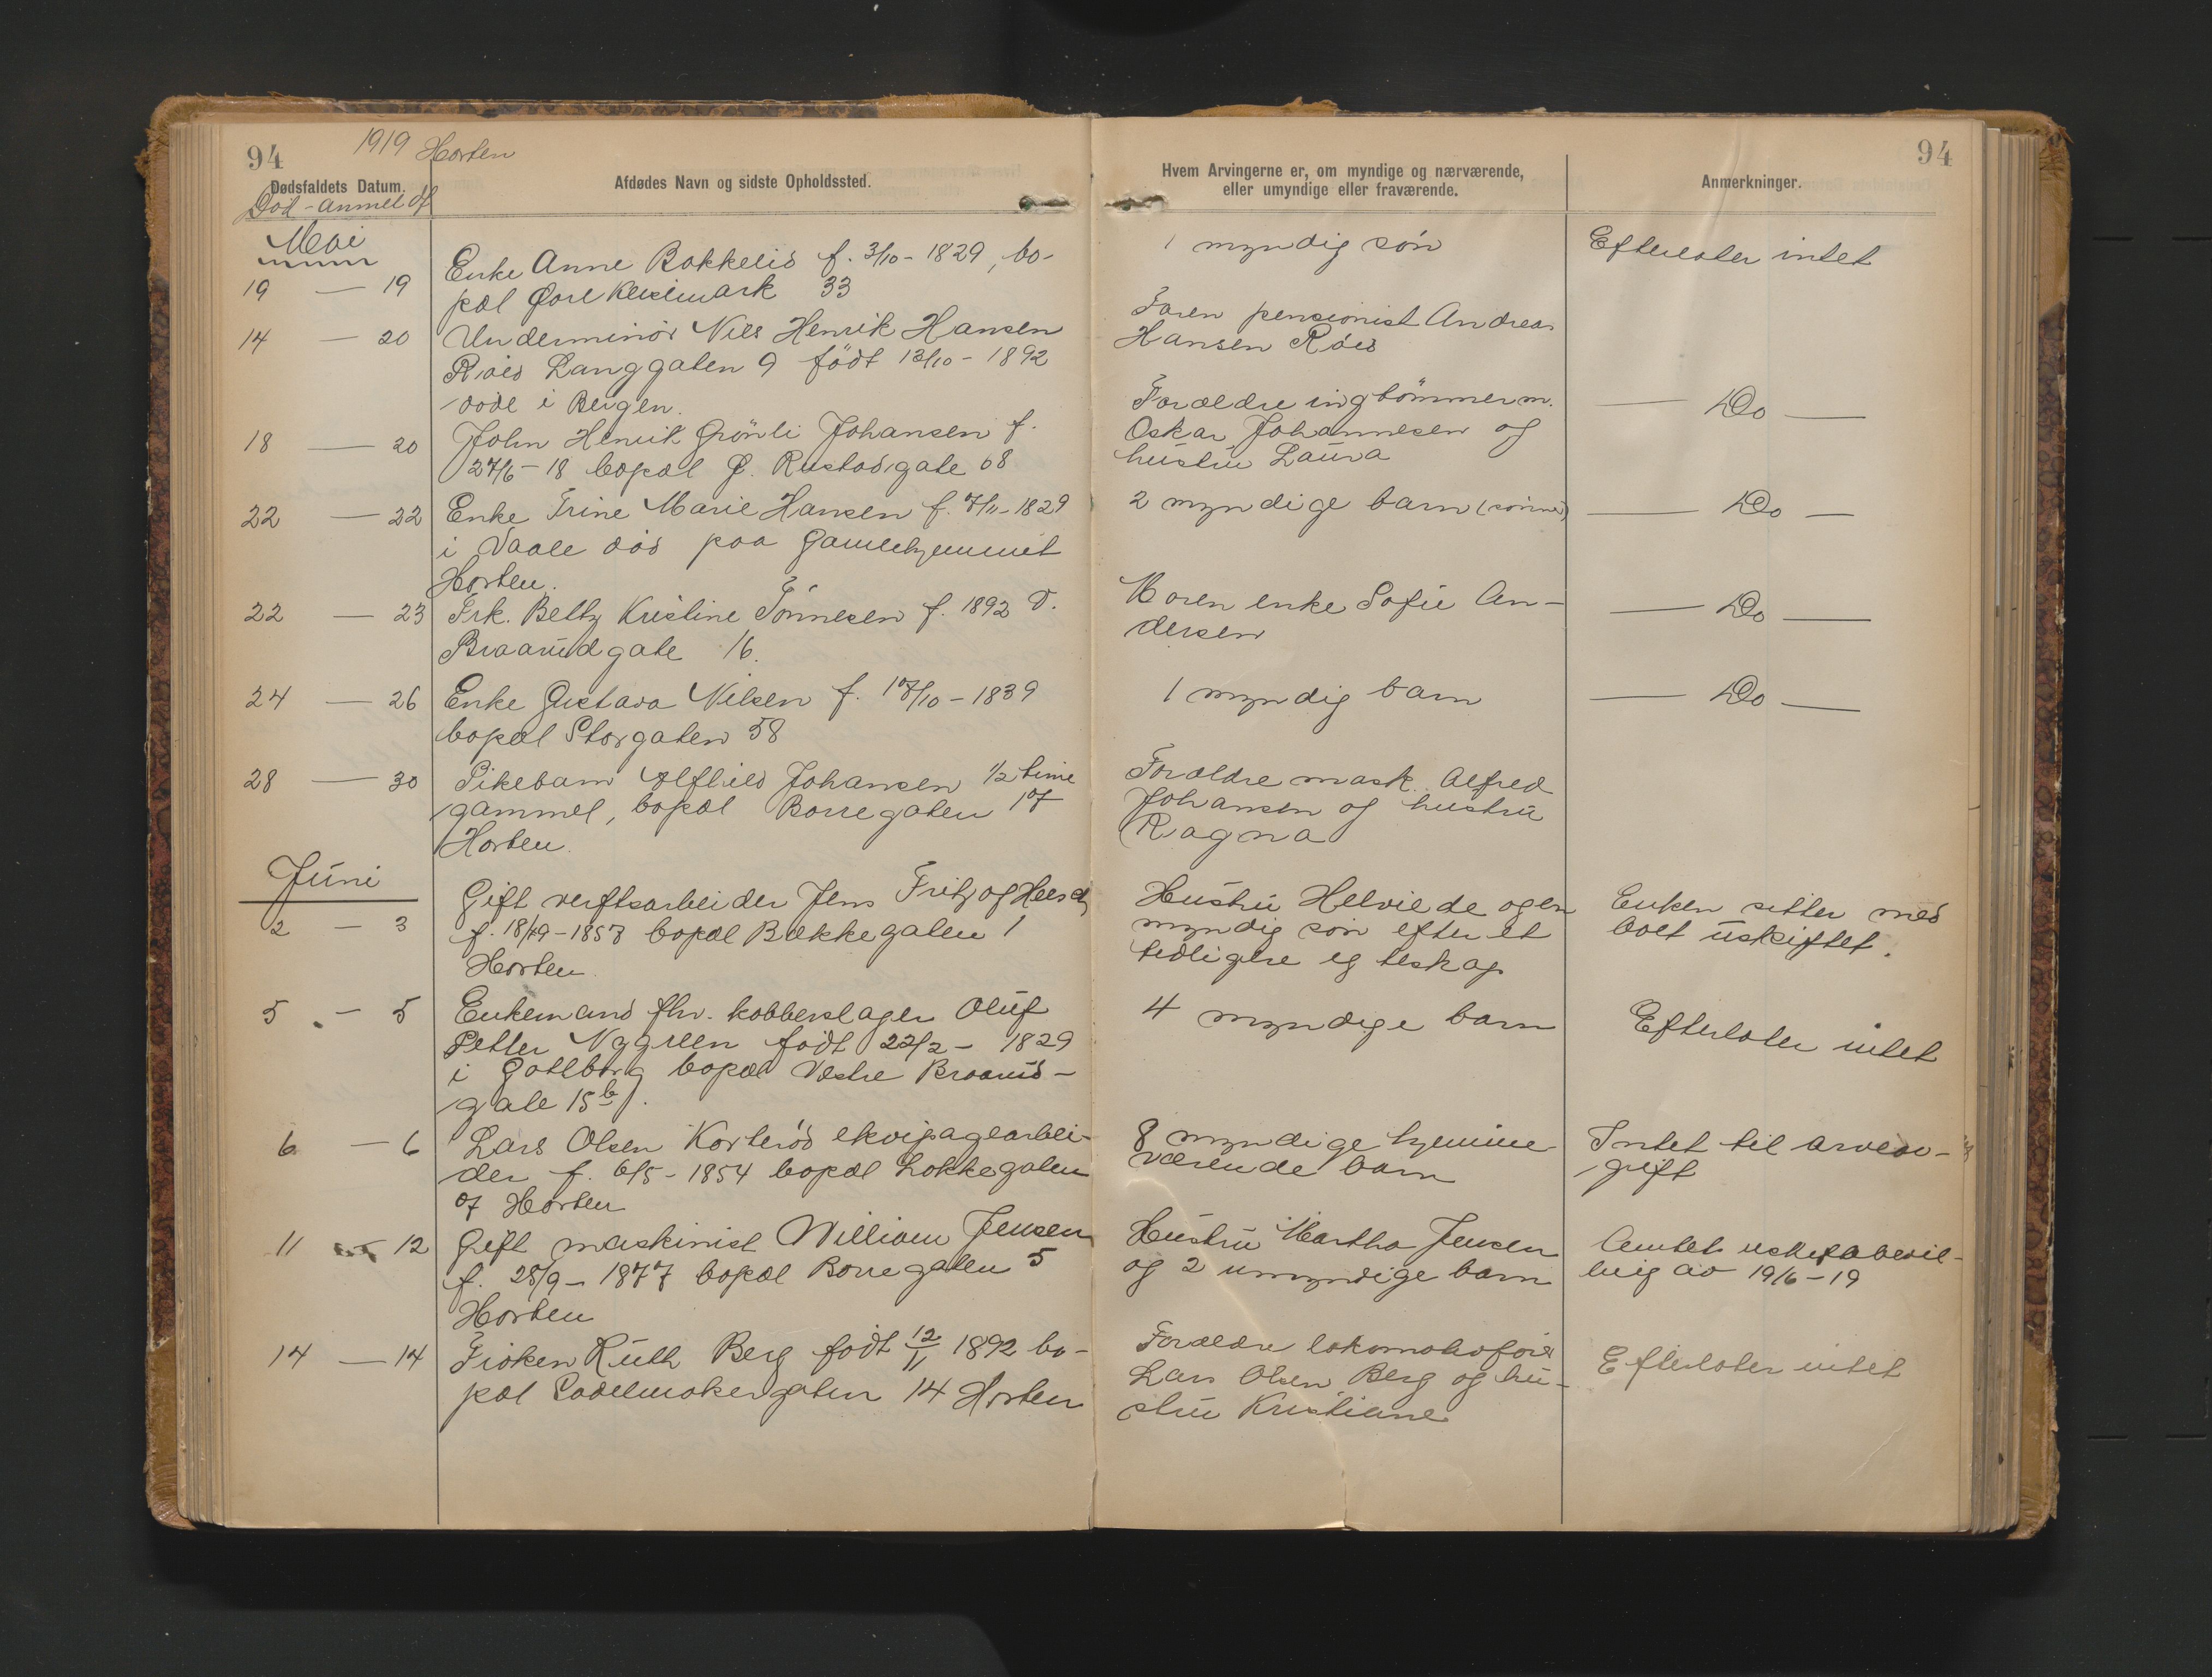 94
1919 Horten
94
Dødsfaldets Datum.
Afdødes Navn og sidste Opholdssted.
Hvem Arvingerne er, om myndige og nærværende,
eller umyndige eller fraværende.
Anmerkninger.
Död - anmeldt
Mai
19 — 19
Enke Anne Bakkelid f. 3/10 - 1829, bo-
pæl Keisemark 33
1 myndig søn
Efterlater intet
14 — 20
Underminör Nils Henrik Hansen
Röed Langgaten 9 födt 13/10 - 1892
döde i Bergen.
Faren pensionist Andreas
Hansen Röed
18 — 20
John Henrik Grönli Johansen f.
27/6 - 18 bopæl Ø. Rustadgate 68
Forældre tömmerm.
Oskar Johannesen og
hustru Laura
— Do —
22 — 22
Enke Trine Marie Hansen f. 7/11 - 1829
i Vaale död paa Gamlehjemmet
Horten.
2 myndige barn (sönner)
— Do —
22 — 23
Frk. Betty Kristine Tönnesen f. 1892 V.
Braarudgate 16.
Moren enke Sofie An-
dersen
— Do —
24 — 26
Enke Gustava Nilsen f. 17/10 - 1839
bopæl Storgaten 58
1 myndig barn
— Do —
28 — 30
Pikebarn Alfhild Johansen 1/2 time
gammel, bopæl Borregaten 107
Horten.
Forældre mask. Alfred
Johansen og hustru
Ragna
Juni
2 — 3
Gift verftsarbeider Jens Fritzof
f. 18/9 - 1857 bopæl Bækkegaten 1
Horten
Hustru og en
myndig sön efter et
tidligere egteskap
Enken sitter med
boet uskiftet.
5 — 5
Enkemand fhv. kobberslager Oluf
Petter Nygreen födt 22/2 - 1829
i Gøteborg bopæl Vestre Braarud-
gate 15b.
4 myndige barn
Efterlater intet
6 — 6
Lars Olsen Korteröd ekvipagearbei-
der f. 6/5 - 1854 bopæl Løkkegaten
07 Horten
8 myndige hjemme
værende barn
Intet til arveav-
gift
11 — 12
Gift maskinist William Jensen
f. 28/9 - 1877 bopæl Borregaten 5
Horten
Hustru Martha Jensen
og 2 umyndige barn
Amtets uskiftebevil-
ling av 19/6 - 19
14 — 14
Fröken Ruth Berg födt 12/11 1892 bo-
pæl Sadelmakergaten 14 Horten
Forældre lokomotivförer
Lars Olsen Berg og hu-
stru Kristiane
Efterlater intet